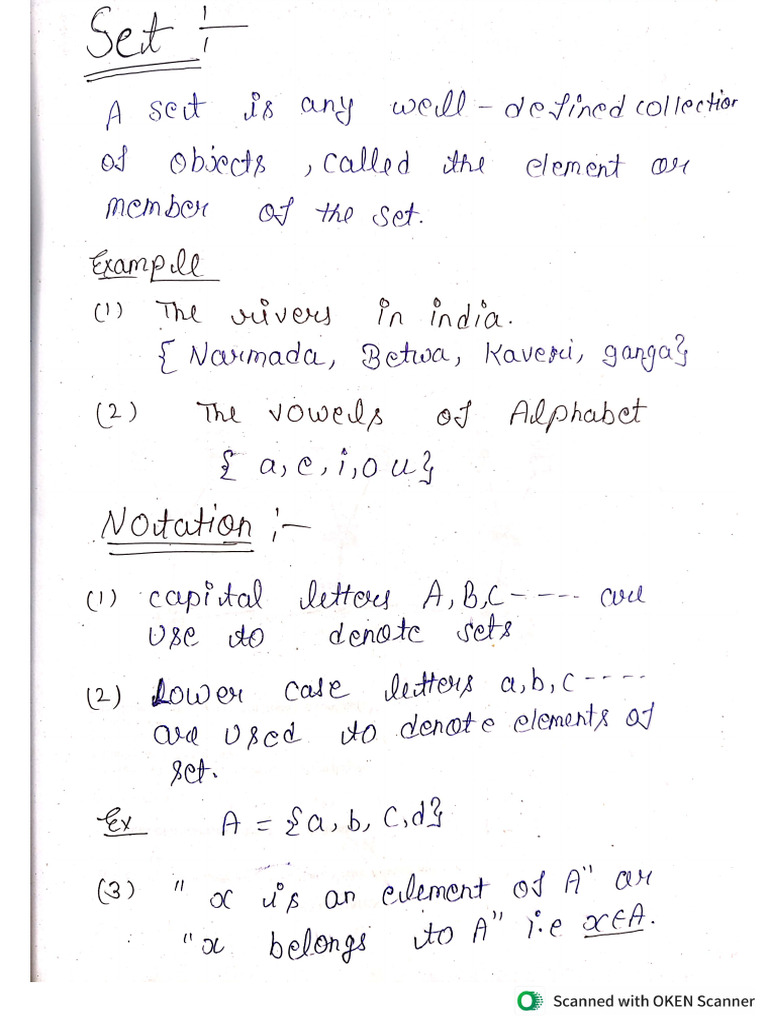 Set :-
A set is any well-defined collection
of objects, called the element or
member of the set.
Example
(1) The rivers in india.
{ Narmada, Betwa, Kaveri, ganga}
(2) The vowels of Alphabet
{ a, e, i, o u}
Notation :-
(1) capital letters A, B, C ----- are
use to denote sets
(2) Lower case letters a, b, c -----
are used to denote elements of
set.
Ex A = {a, b, c, d}
(3) " x is an element of A" or
"x belongs to A" i.e x∈A.
Scanned with OKEN Scanner